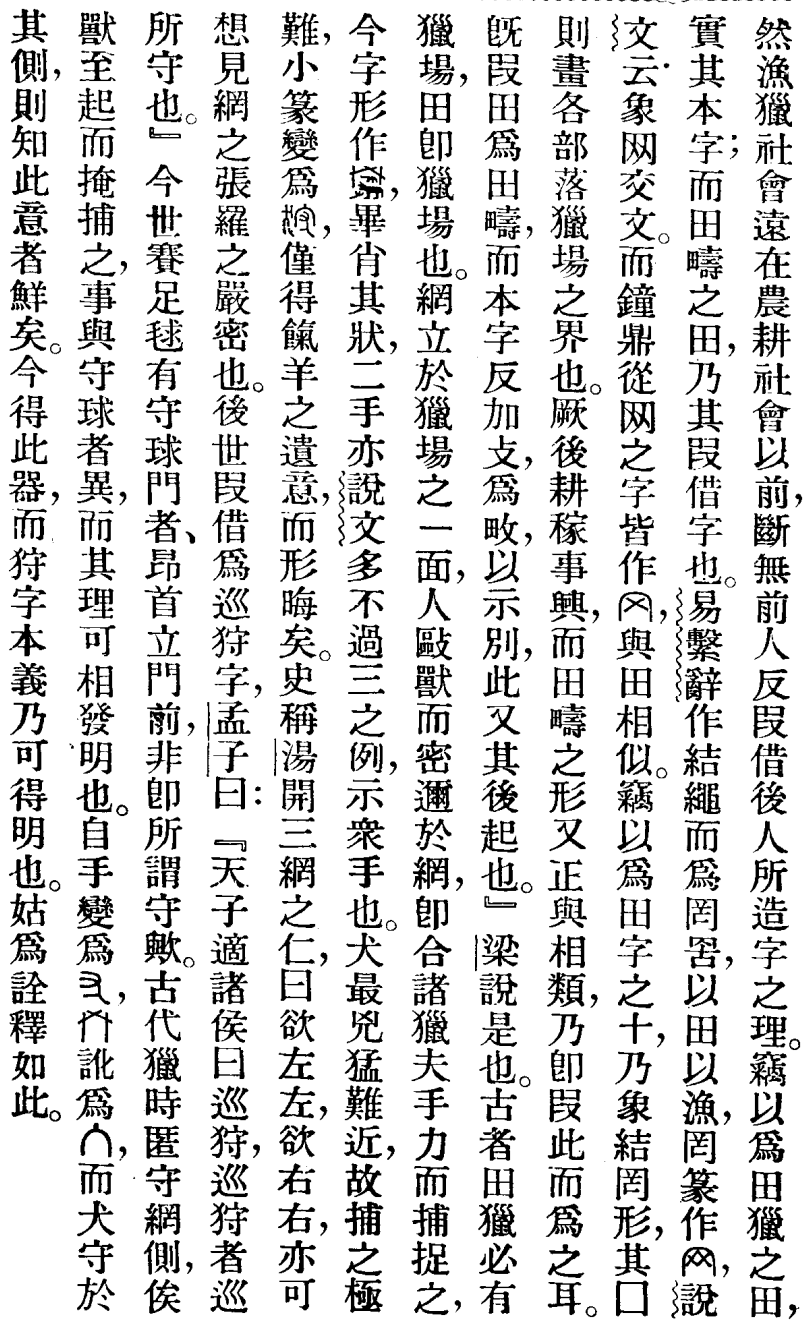 然漁獵社會遠在農耕社會以前，斷無前人反叚借後人所造字之理。竊以爲田獵之田，
實其本字；而田疇之田，乃其叚借字也。易繫辭作結繩而爲罔罟，以田以漁，罔篆作，說
文云：象网交文。而鐘鼎從网之字皆作，與田相似。竊以爲田字之十，乃象結罔形，其囗
則畫各部落獵場之界也。厥後耕稼事興，而田疇之形又正與相類，乃卽叚此而爲之耳。
旣叚田爲田疇，而本字反加攴，爲畋，以示別，此又其後起也。』梁說是也。古者田獵必有
獵場，田卽獵場也。網立於獵場之一面，人敺獸而密邇於網，卽合諸獵夫手力而捕捉之，
今字形作，畢肖其狀，二手亦說文多不過三之例，示衆手也。犬最兇猛難近，故捕之極
難，小篆變爲，僅得餼羊之遺意，而形晦矣。史稱湯開三網之仁，曰欲左左，欲右右，亦可
想見網之張羅之嚴密也。後世叚借爲巡狩字，孟子曰：『天子適諸侯曰巡狩，巡狩者巡
所守也。』今世賽足毬有守球門者、昂首立門前，非卽所謂守歟。古代獵時匿守網側，俟
獸至起而掩捕之，事與守球者異，而其理可相發明也。自手變爲，訛爲，而犬守於
其側，則知此意者鮮矣。今得此器，而狩字本義乃可得明也。姑爲詮釋如此。